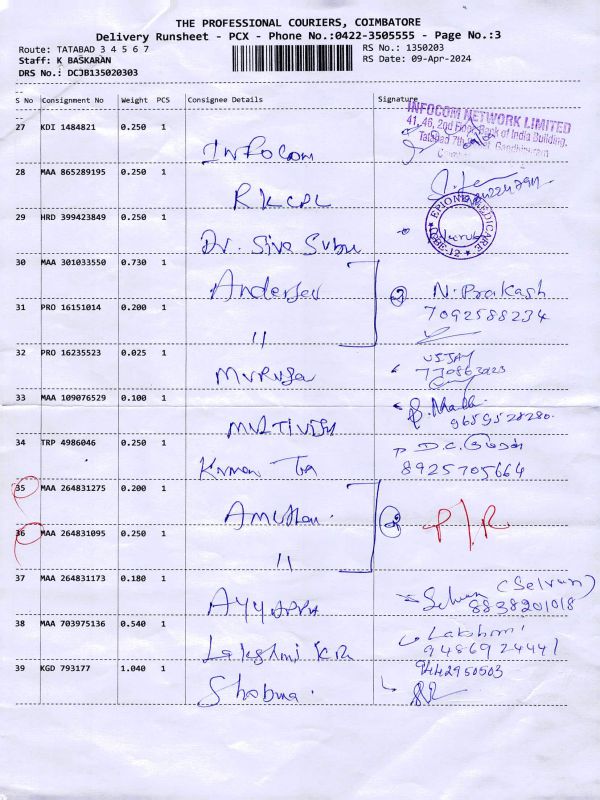 THE PROFESSIONAL COURIERS, COIMBATORE
Delivery Runsheet - PCX - Phone No.:0422-3505555 - Page No.:3
Route: TATABAD 3 4 5 6 7
RS No.: 1350203
Staff: K BASKARAN
RS Date: 09-Apr-2024
DRS No.: DCJB135020303
S No Consignment No Weight PCS Consignee Details Signature
INFOCOM NETWORK LIMITED
41, 46, 2nd Floor, Bank of India Building,
27 KDI 1484821 0.250 1
Infocom
28 MAA 865289195 0.250 1
RKCPL
29 HRD 399423849 0.250 1
EPIONE MEDICARE
Dr. Siva Subu
30 MAA 301033550 0.730 1
Andersen
② N. Prakash
31 PRO 16151014 0.200 1
7092588234
"
32 PRO 16235523 0.025 1
VIJAY
Muruga
33 MAA 109076529 0.100 1
9659528280
34 TRP 4986046 0.250 1
D.C.
8925705664
35 MAA 264831275 0.200 1
② P/R
36 MAA 264831095 0.250 1
"
37 MAA 264831173 0.180 1
(Selvan)
8838201018
Ayyappa
38 MAA 703975136 0.540 1
Lakshmi
9486924441
Lakshmi
39 KGD 793177 1.040 1
9442950503
Shobna.